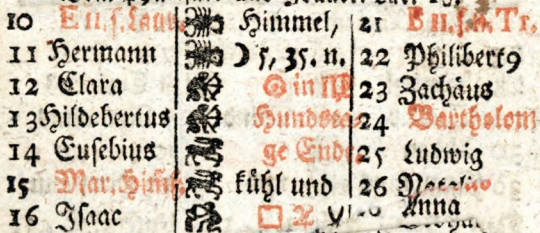 10 E 11. f. Laur. Himmel, 21 B 11. f. n. Tr.
11 Hermann ☽ 5, 35. n. 22 Philibert9
12 Clara ☉ in ♍ 23 Zachäus
13 Hildebertus Hundsta= 24 Bartholom
14 Eusebius ge Ende 25 Ludwig
15 Mar. Himmf. kühl und 26
16 Isaac □ ♃ Anna